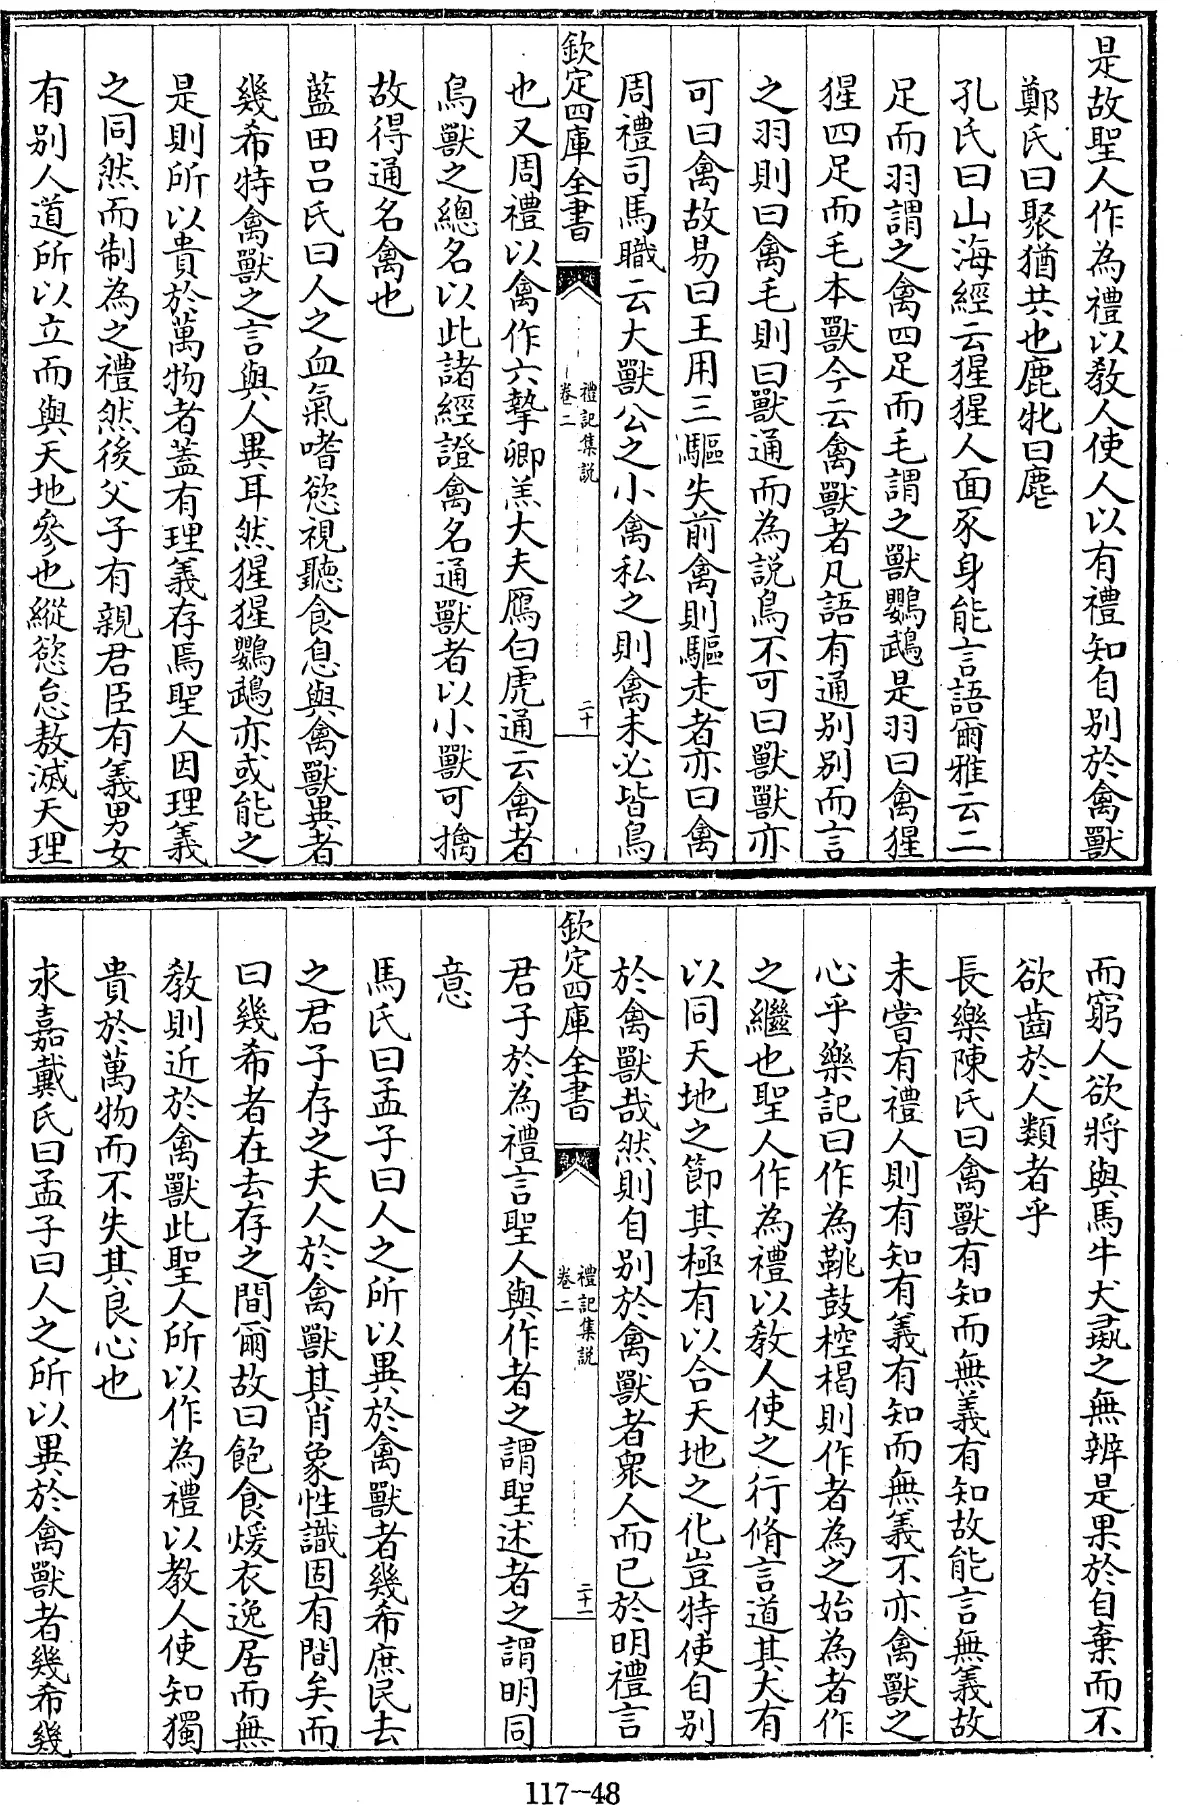 是故聖人作為禮以教人使人以有禮知自别於禽獸
鄭氏曰聚猶共也鹿牝曰麀
孔氏曰山海經云猩猩人面豕身能言語爾雅云二
足而羽謂之禽四足而毛謂之獸鸚鵡是羽曰禽猩
猩四足而毛本獸今云禽獸者凡語有通别别而言
之羽則曰禽毛則曰獸通而為説鳥不可曰獸獸亦
可曰禽故易曰王用三驅失前禽則驅走者亦曰禽
周禮司馬職云大獸公之小禽私之則禽未必皆鳥
欽定四庫全書
禮記集説
卷二
二十
也又周禮以禽作六摯卿羔大夫鴈白虎通云禽者
鳥獸之總名以此諸經證禽名通獸者以小獸可擒
故得通名禽也
藍田呂氏曰人之血氣嗜慾視聽食息與禽獸異者
幾希特禽獸之言與人異耳然猩猩鸚鵡亦或能之
是則所以貴於萬物者蓋有理義存焉聖人因理義
之同然而制為之禮然後父子有親君臣有義男女
有别人道所以立而與天地參也縱慾怠敖滅天理
而窮人欲將與馬牛犬彘之無辨是果於自棄而不
欲齒於人類者乎
長樂陳氏曰禽獸有知而無義有知故能言無義故
未嘗有禮人則有知有義有知而無義不亦禽獸之
心乎樂記曰作為鞉鼓椌楬則作者為之始為者作
之繼也聖人作為禮以教人使之行脩言道其大有
以同天地之節其極有以合天地之化豈特使自别
於禽獸哉然則自别於禽獸者衆人而已於明禮言
欽定四庫全書
禮記集説
卷二
二十一
君子於為禮言聖人與作者之謂聖述者之謂明同
意
馬氏曰孟子曰人之所以異於禽獸者幾希庶民去
之君子存之夫人於禽獸其肖象性識固有間矣而
曰幾希者在去存之間爾故曰飽食煖衣逸居而無
教則近於禽獸此聖人所以作為禮以教人使知獨
貴於萬物而不失其良心也
永嘉戴氏曰孟子曰人之所以異於禽獸者幾希幾
117-48